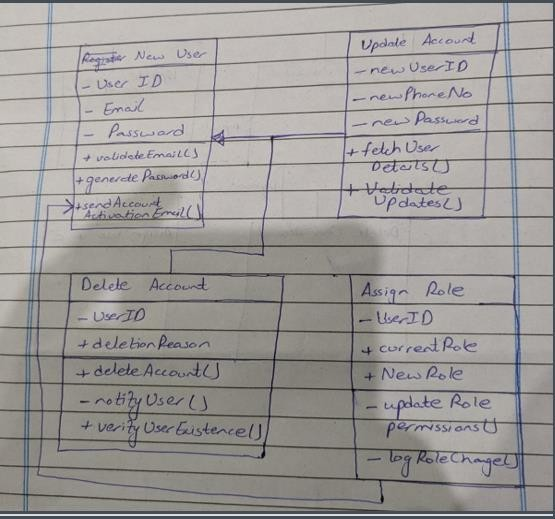 Register New User
- User ID
- Email
- Password
+ validateEmail()
+ generatePassword()
+ sendAccount
ActivationEmail()
Update Account
- newUserID
- newPhoneNo
- newPassword
+ fetchUser
Details()
+ Validate
Updates()
Delete Account
- UserID
+ deletionReason
+ deleteAccount()
- notifyUser()
+ verifyUserExistence()
Assign Role
- UserID
+ currentRole
+ NewRole
- updateRole
permissions()
- logRoleChange()